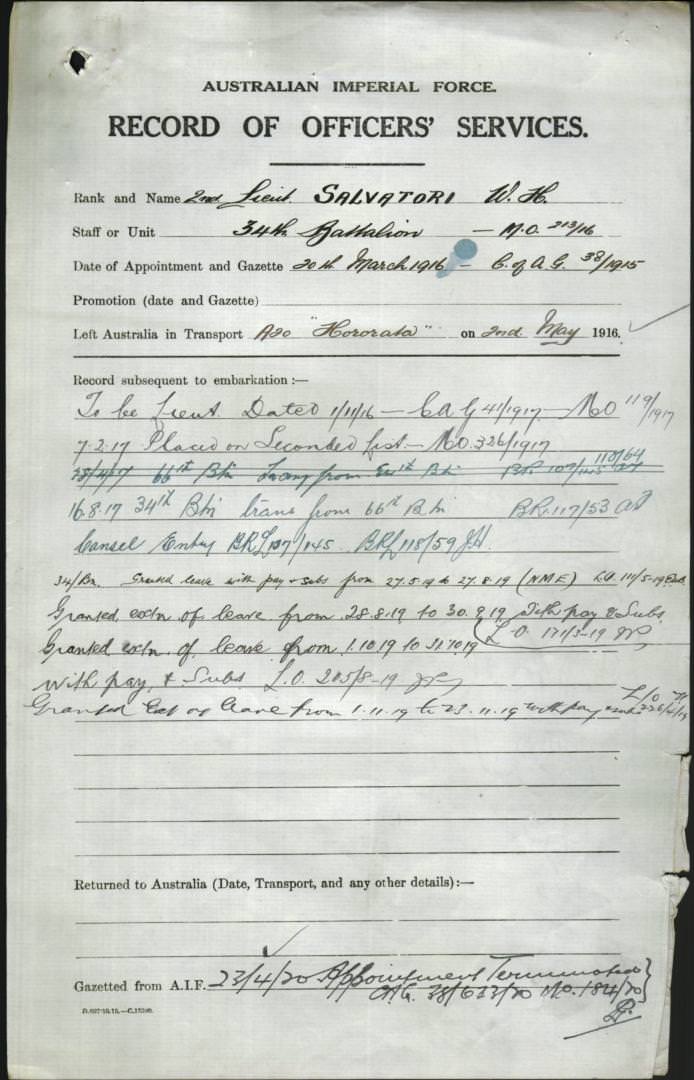 AUSTRALIAN IMPERIAL FORCE.
RECORD OF OFFICERS' SERVICES.
Rank and Name 2nd. Lieut. SALVATORI W. H.
Staff or Unit 34th Battalion — M.O. 213/16
Date of Appointment and Gazette 20th March 1916 — C. of A. G. 38/1915
Promotion (date and Gazette)
Left Australia in Transport A20 "Hororata" on 2nd May 1916.
Record subsequent to embarkation :—
To be Lieut. Dated 1/11/16 — C A G 41/1917 — M O 119/1917
7-2-17 Placed on Seconded List — M.O. 326/1917
28/4/17 66th Bn from 34th Bn BRL 107/145 118/64
16.8.17 34th Bn trans from 66th Bn BRL 117/53
Cansel Entry BRL 107/145 BRL 118/59 JH.
34/Bn. Granted leave with pay & subs from 27.5.19 to 27.8.19 (NME) L.O. 111/5-19
Granted extn of leave from 28.8.19 to 30.9.19 with pay & Subs.
L.O. 171/3-19
Granted extn. of leave from 1.10.19 to 31.10.19
with pay & Subs L.O. 205/8-19
Granted Ext of leave from 1.11.19 to 23.11.19 with pay & subs L/O 226/4/19
Returned to Australia (Date, Transport, and any other details) :—
Gazetted from A.I.F. 23/4/20 Appointment Terminated
C.A.G. 38/6 23/20 M.O. 184/20